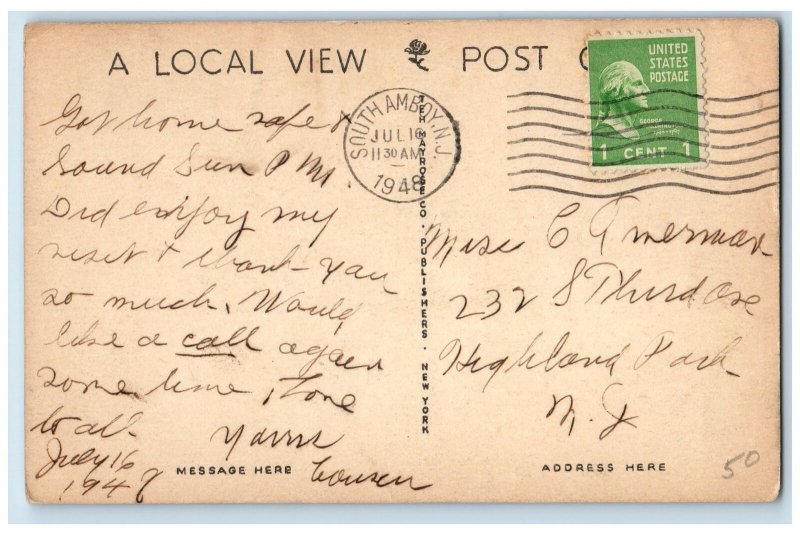 A LOCAL VIEW POST C
SOUTH AMBOY, N.J.
JUL 16
11 30 AM
1948
UNITED
STATES
POSTAGE
GEORGE
1 CENT 1
Got home safe &
Sound Sun P M.
Did enjoy my
visit & thank-you
so much. Would
like a call again
some time, Love
to all.
Yours
Cousin
July 16
1948
MESSAGE HERE
TEH MAYROSE CO. PUBLISHERS. NEW YORK
Miss C Amerman
232 S Third Ave
Highland Park
N. J
ADDRESS HERE
50